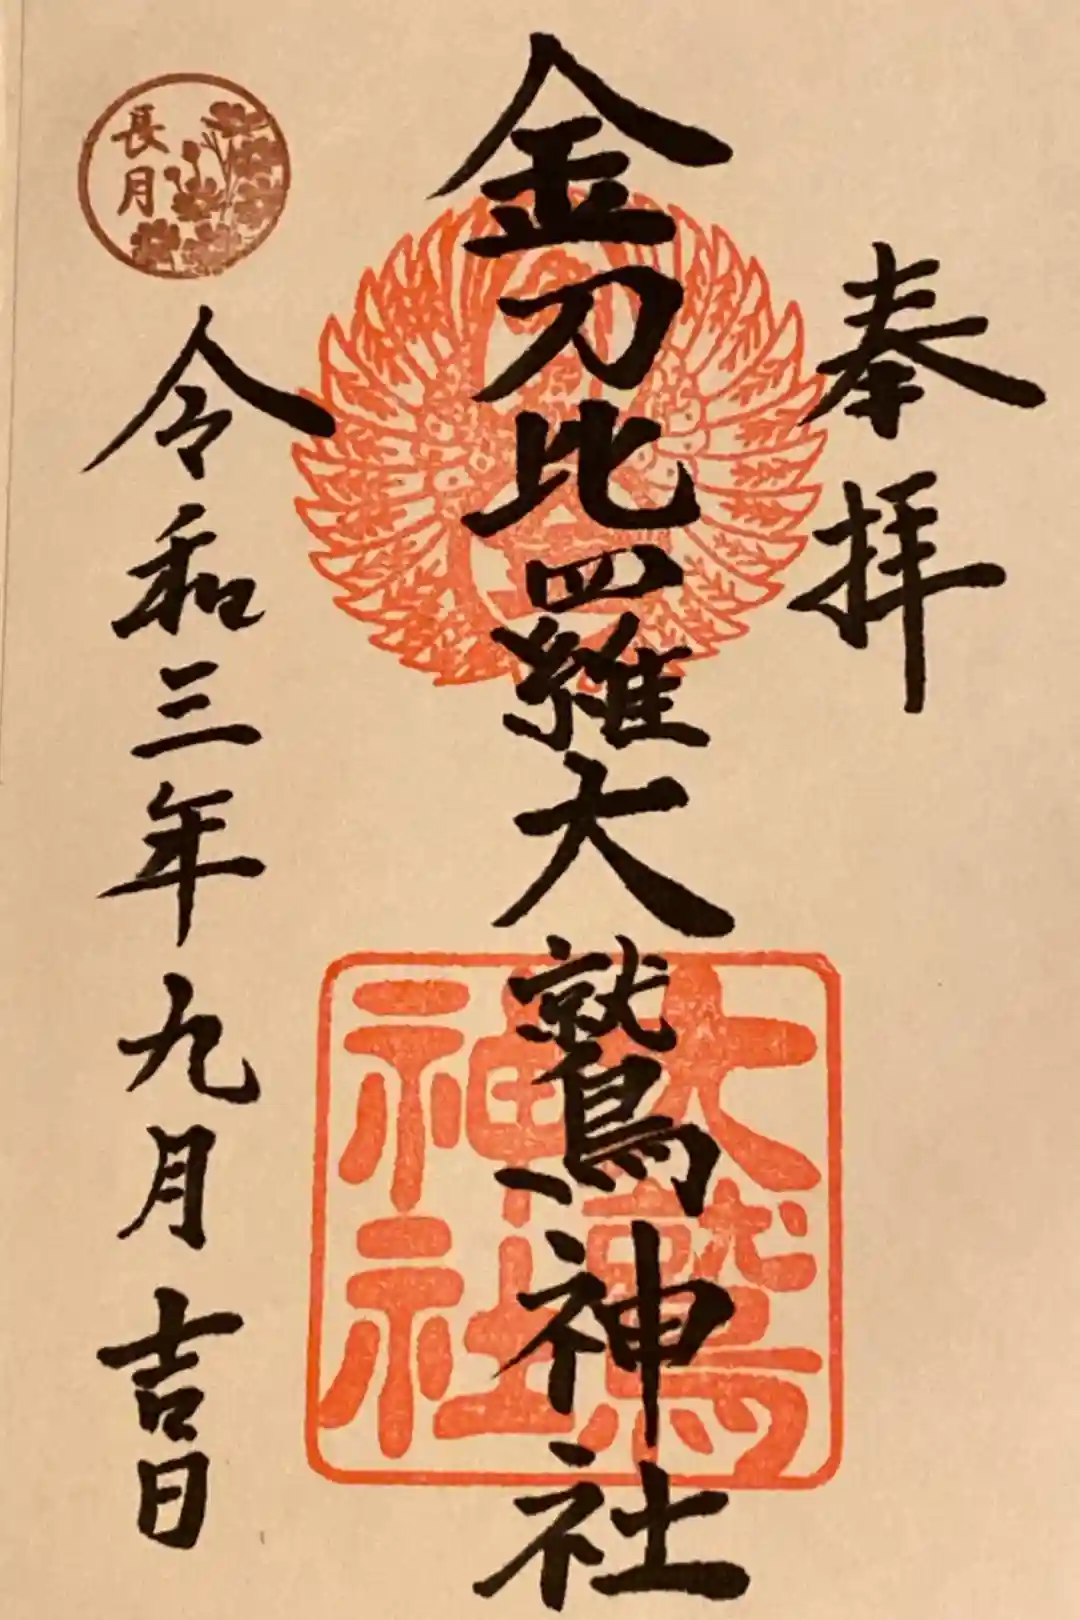 奉拝
金刀比羅大鷲神社
大鷲
神社
長月
令和三年九月吉日